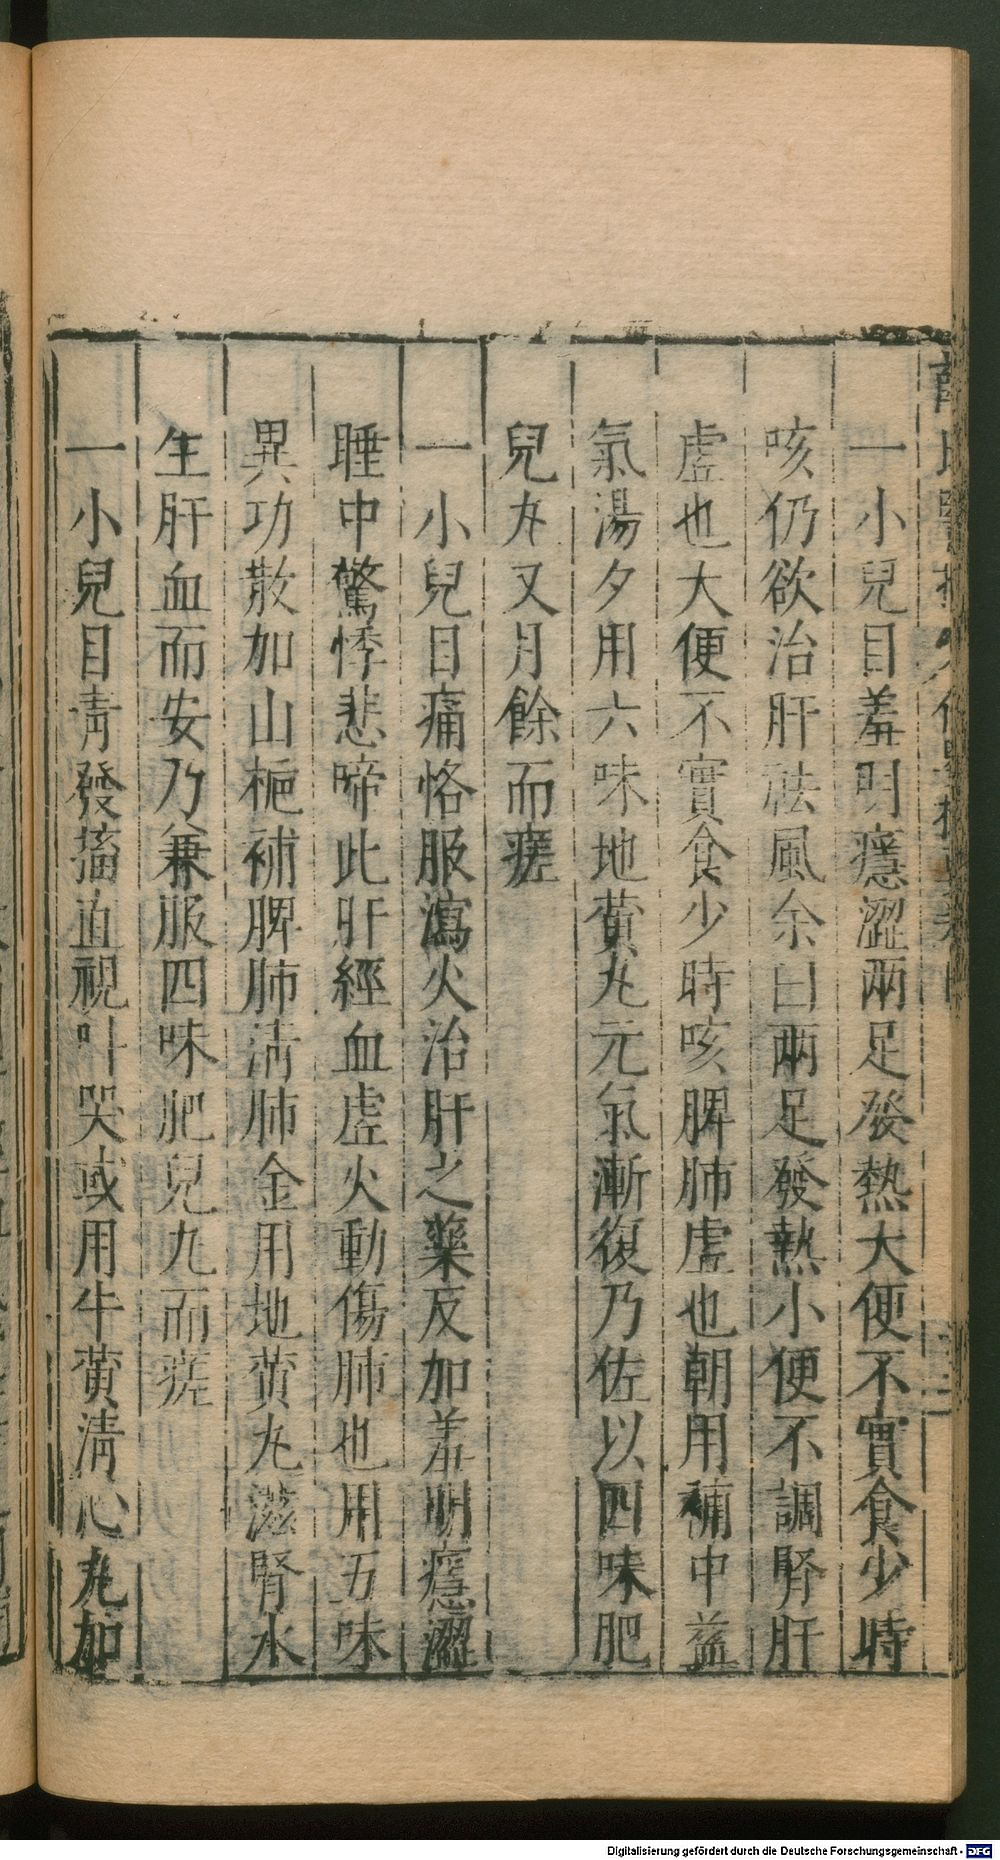 一小兒目羞明癮澀兩足發熱大便不實食少時
咳仍欲治肝祛風余曰兩足發熱小便不調腎肝
虛也大便不實食少時咳脾肺虛也朝用補中益
氣湯夕用六味地黄丸元氣漸復乃佐以四味肥
兒丸又月餘而瘥
一小兒目痛恪服瀉火治肝之藥反加羞明癮澀
睡中驚悸悲啼此肝經血虛火動傷肺也用五味
異功散加山梔補脾肺清肺金用地黄丸滋腎水
生肝血而安乃兼服四味肥兒丸而瘥
一小兒目青發搐直視叫哭或用牛黄清心丸加
Digitalisierung gefördert durch die Deutsche Forschungsgemeinschaft - DFG